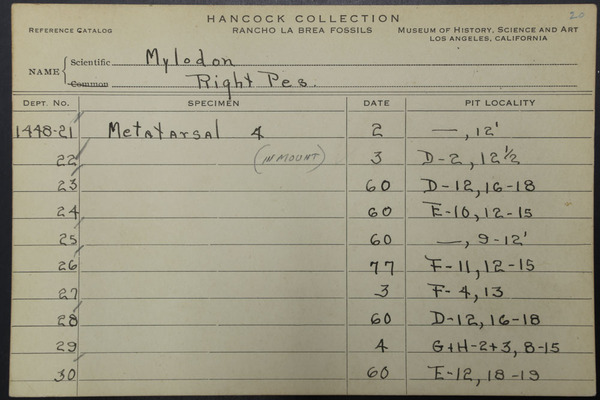 20
HANCOCK COLLECTION
REFERENCE CATALOG RANCHO LA BREA FOSSILS MUSEUM OF HISTORY, SCIENCE AND ART
LOS ANGELES, CALIFORNIA
NAME { Scientific Mylodon
Common Right Pes.
DEPT. NO. SPECIMEN DATE PIT LOCALITY
1448-21 Metatarsal 4 2 —, 12'
22 (IN MOUNT) 3 D-2, 12½
23 60 D-12, 16-18
24 60 E-10, 12-15
25 60 —, 9-12'
26 77 F-11, 12-15
27 3 F-4, 13
28 60 D-12, 16-18
29 4 G+H-2+3, 8-15
30 60 E-12, 18-19